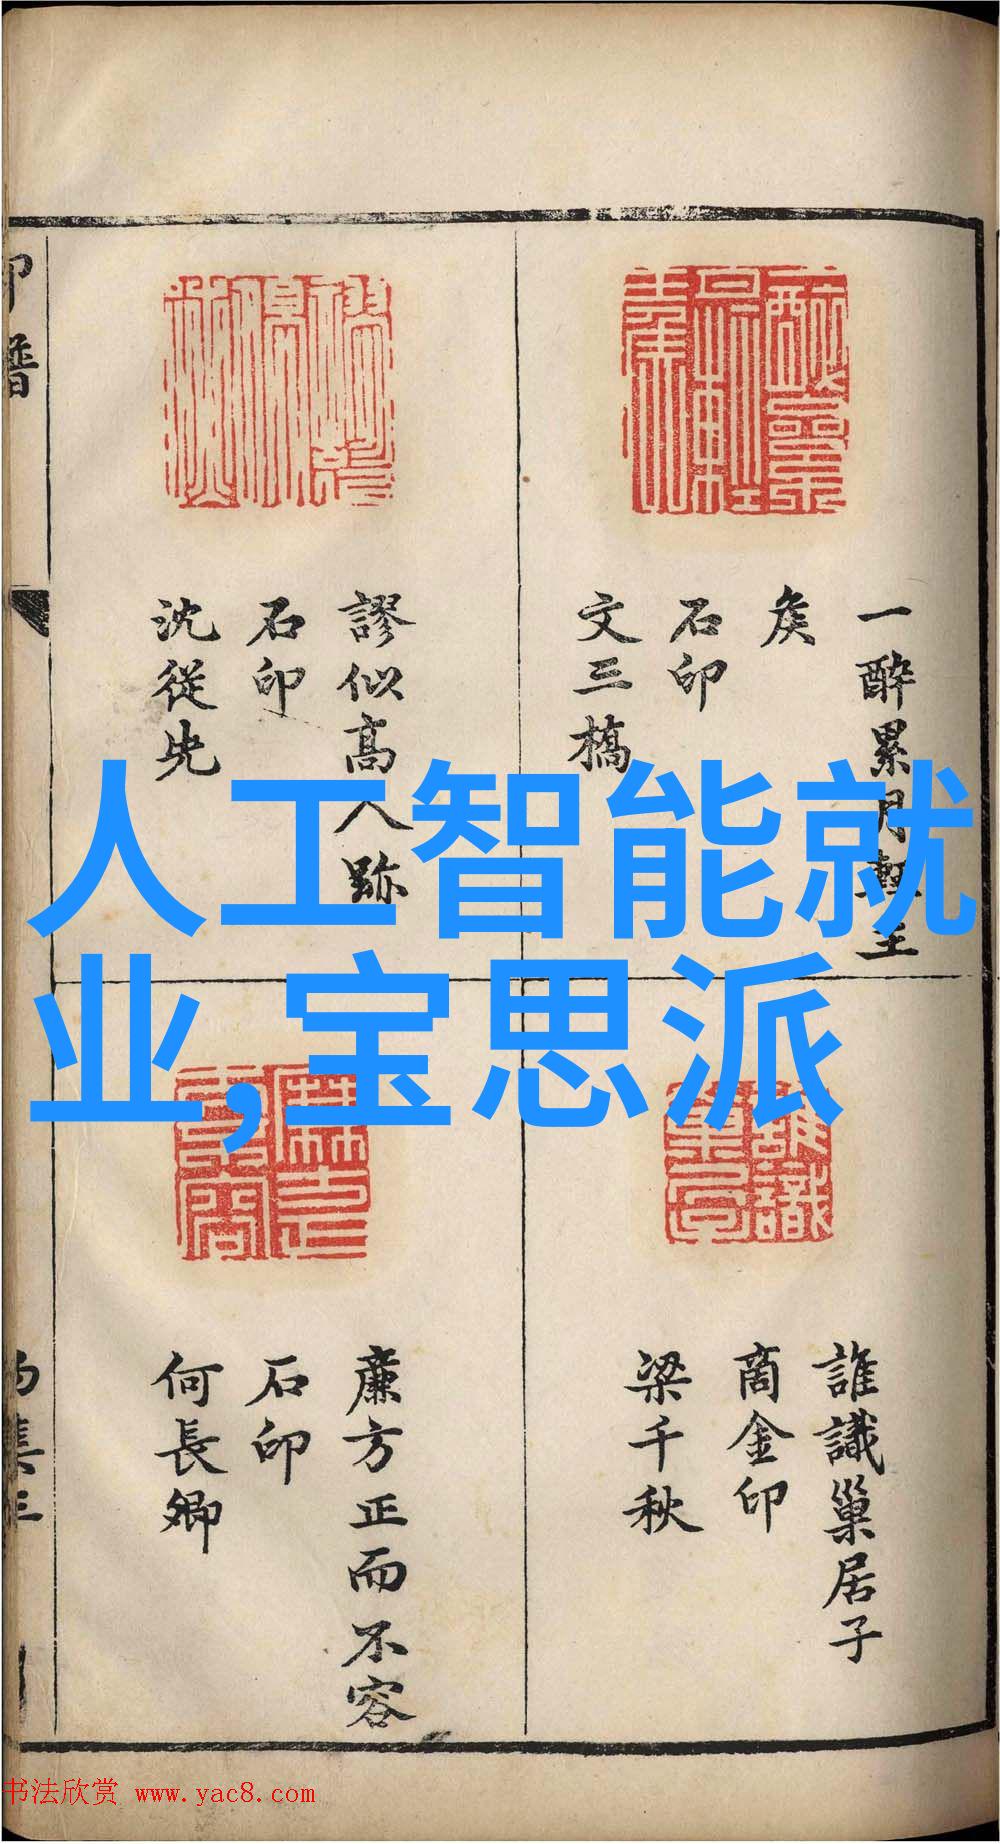 一醉累月輕王
矦
石印
文三橋
謬似高人跡
石印
沈從先
誰識巢居子
商金印
梁千秋
廉方正而不容
石印
何長卿
印譜
人工智能就
业,宝思派
书法欣赏 www.yac8.com